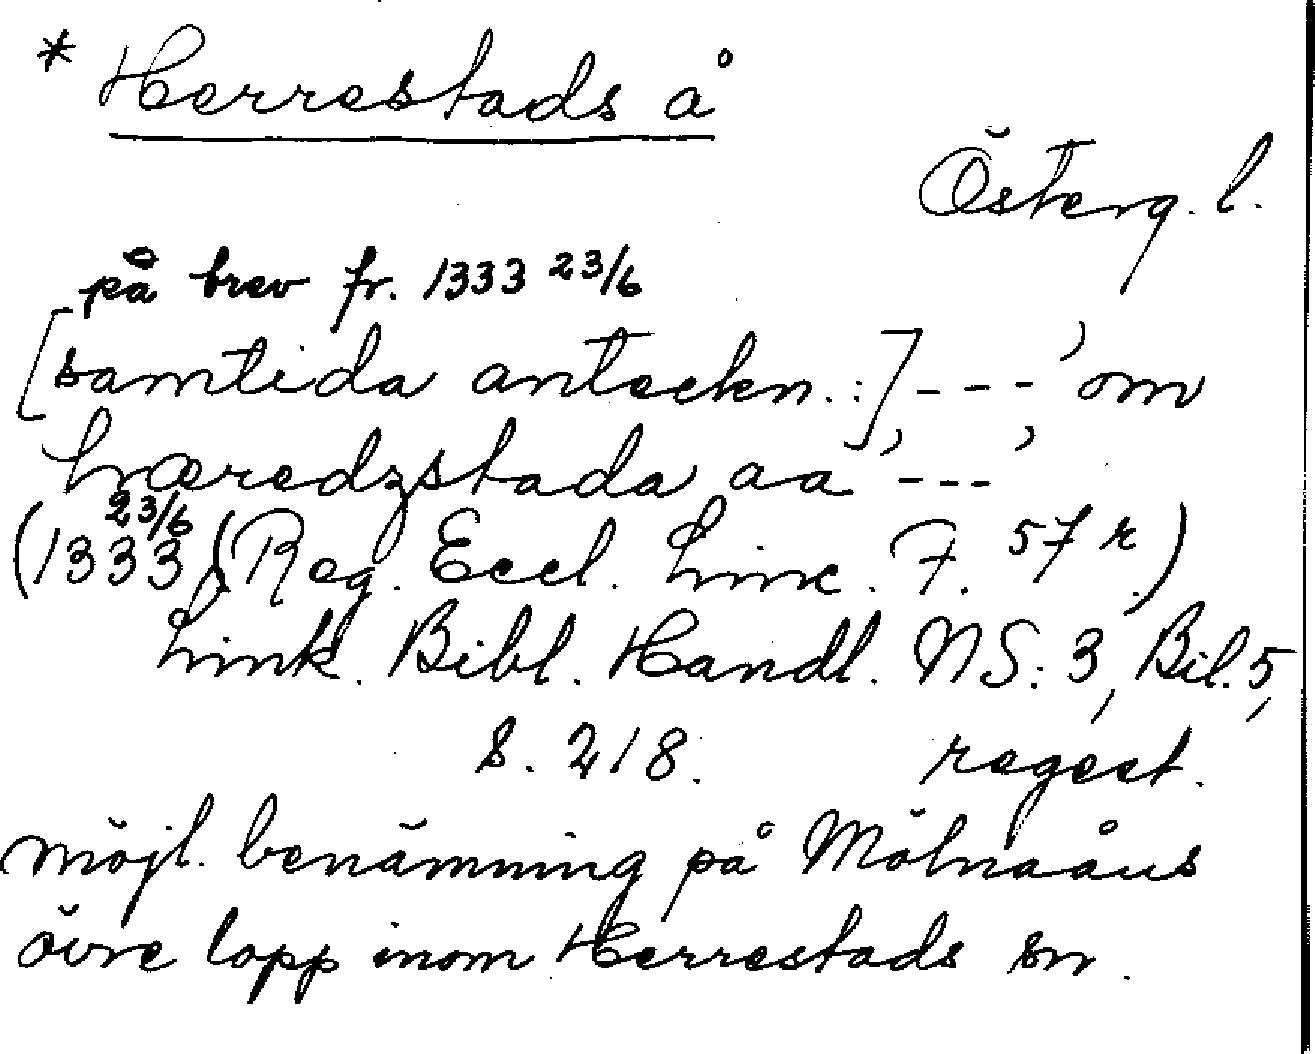 * Herrestads å
Österg. l.
på brev fr. 1333 23/6
[samtida anteckn.:] ---, om
hæredzstada aa, ---,
(1333 23/6 (Reg. Eccl. Linc. F. 57 r.)
Link. Bibl. Handl. NS: 3, Bil. 5,
s. 218. regest.
möjl. benämning på Mölnaåns
övre lopp inom Herrestads sn.